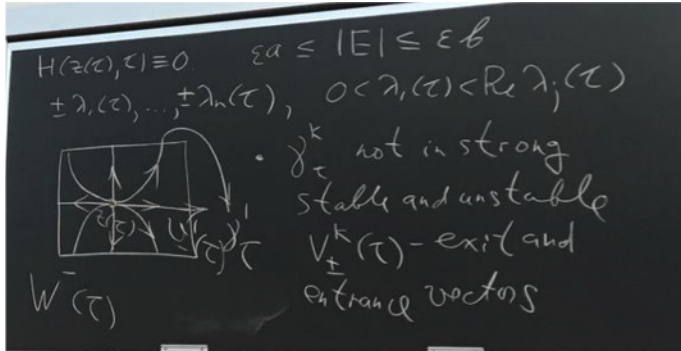 H(z(τ),τ)≡0.
εa ≤ |E| ≤ εb
±λ₁(τ),...,±λₙ(τ), 0<λ₁(τ)<Re λⱼ(τ)
• γ_τ^k not in strong
stable and unstable
V_±^k(τ) - exit and
entrance vectors
z(τ)
γ_τ^1
W^-(τ)